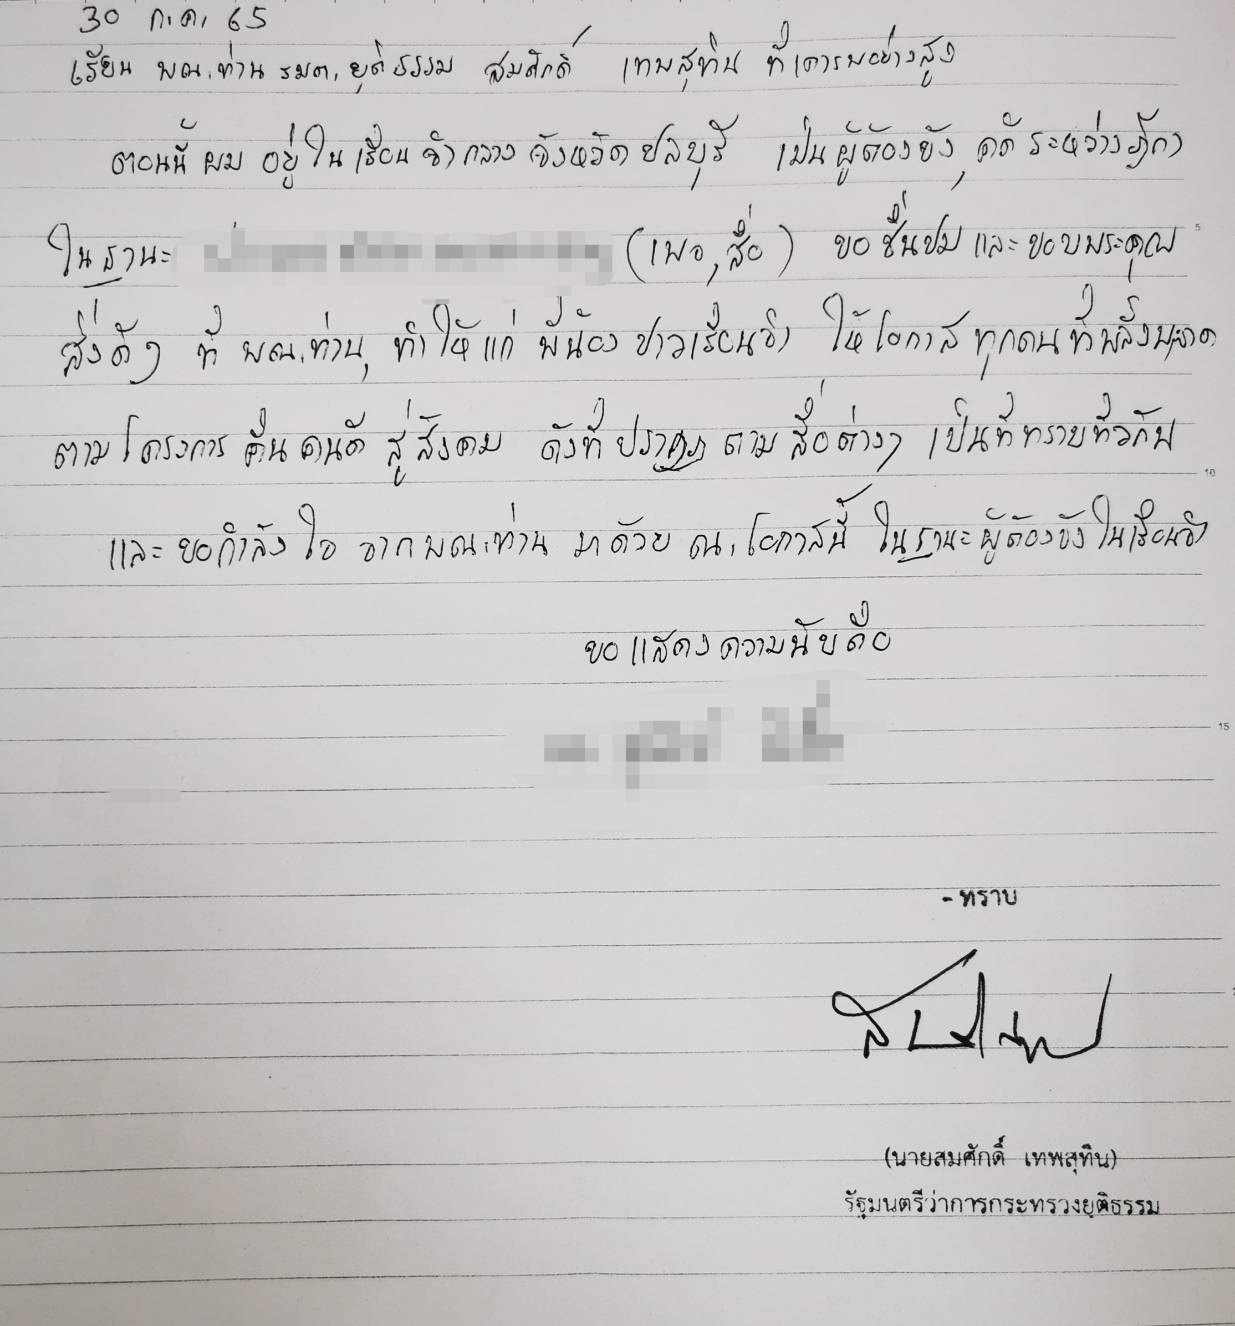 30 ก.ค. 65
เรียน พณ.ท่าน รมต.ยุติธรรม สมศักดิ์ เทพสุทิน ที่เคารพอย่างสูง
ตอนนี้ ผม อยู่ ใน เรือนจำกลาง จังหวัด ชลบุรี เป็นผู้ต้องขัง คดี ระหว่างฎีกา
ในฐานะ (เพจ, สื่อ) ขอ ชื่นชม และ ขอบพระคุณ
สิ่งดีๆ ที่ พณ.ท่าน ทำให้แก่ พี่น้อง ชาวเรือนจำ ให้โอกาส ทุกคน ที่พลั้งพลาด
ตามโครงการ คืนคนดี สู่สังคม ดังที่ ปรากฏ ตาม สื่อต่างๆ เป็นที่ทราบทั่วกัน
และ ขอกำลังใจ จาก พณ.ท่าน มาด้วย ณ.โอกาสนี้ ในฐานะผู้ต้องขัง ในเรือนจำ
ขอแสดงความนับถือ
- ทราบ
(นายสมศักดิ์ เทพสุทิน)
รัฐมนตรีว่าการกระทรวงยุติธรรม
5
10
15